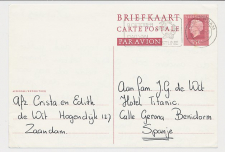 BRIEFKAART
CARTE POSTALE
PAR AVION
Afz Crista en Edith
de Wit Hogendijk 127
Zaandam.
Aan fam. J.G. de Wit
Hotel Titanic.
Calle Gerona, Benidorm
Spanje